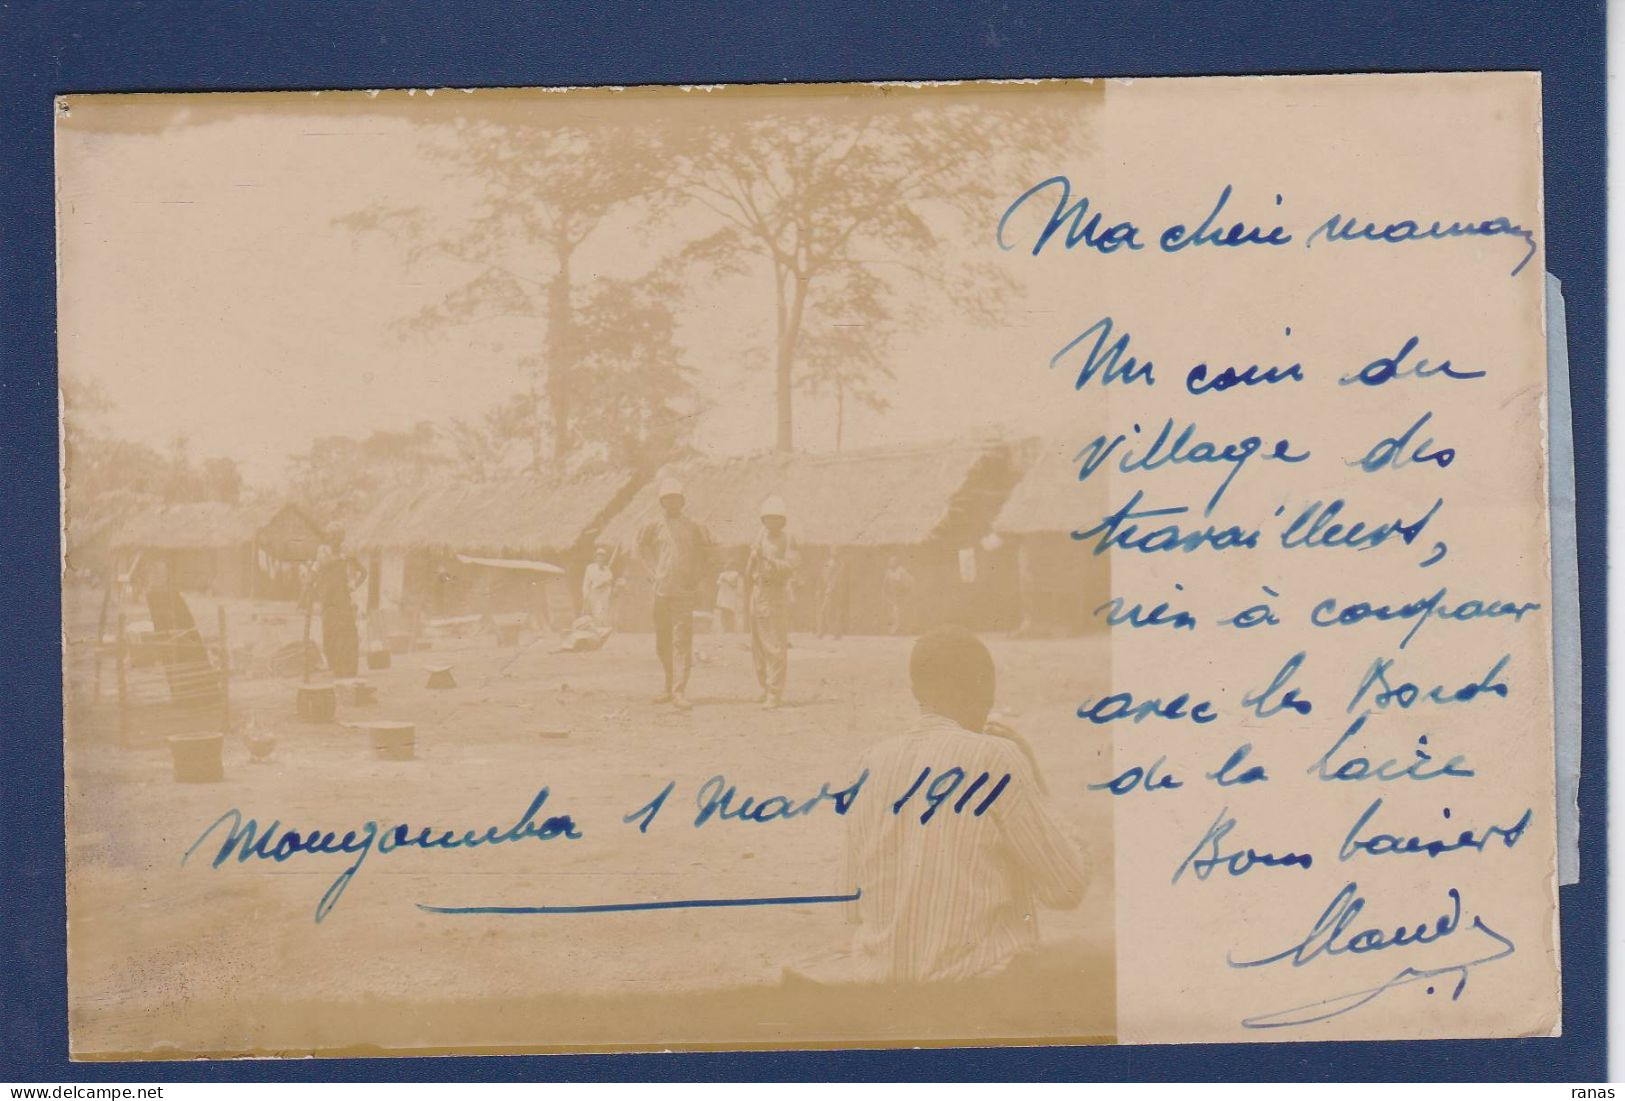 Ma cherie maman
Un coin du
village des
travailleurs,
rien à comparer
avec les Bords
de la Loire
Bons baisers
Claude
Mongoumba 1 Mars 1911
ranas